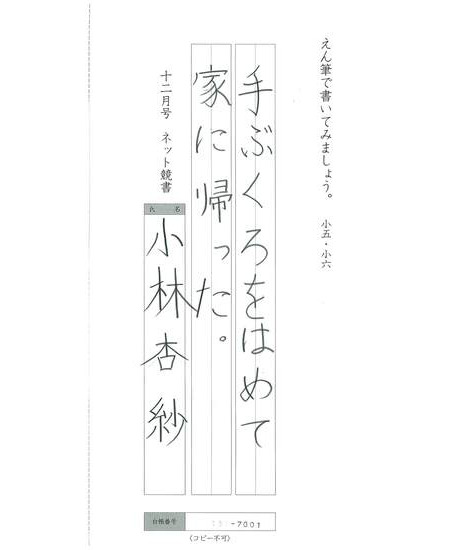 えん筆で書いてみましょう。 小五・小六
手ぶくろをはめて
家に帰った。
十二月号 ネット競書
氏名
小林杏紗
台帳番号
-7001
(コピー不可)